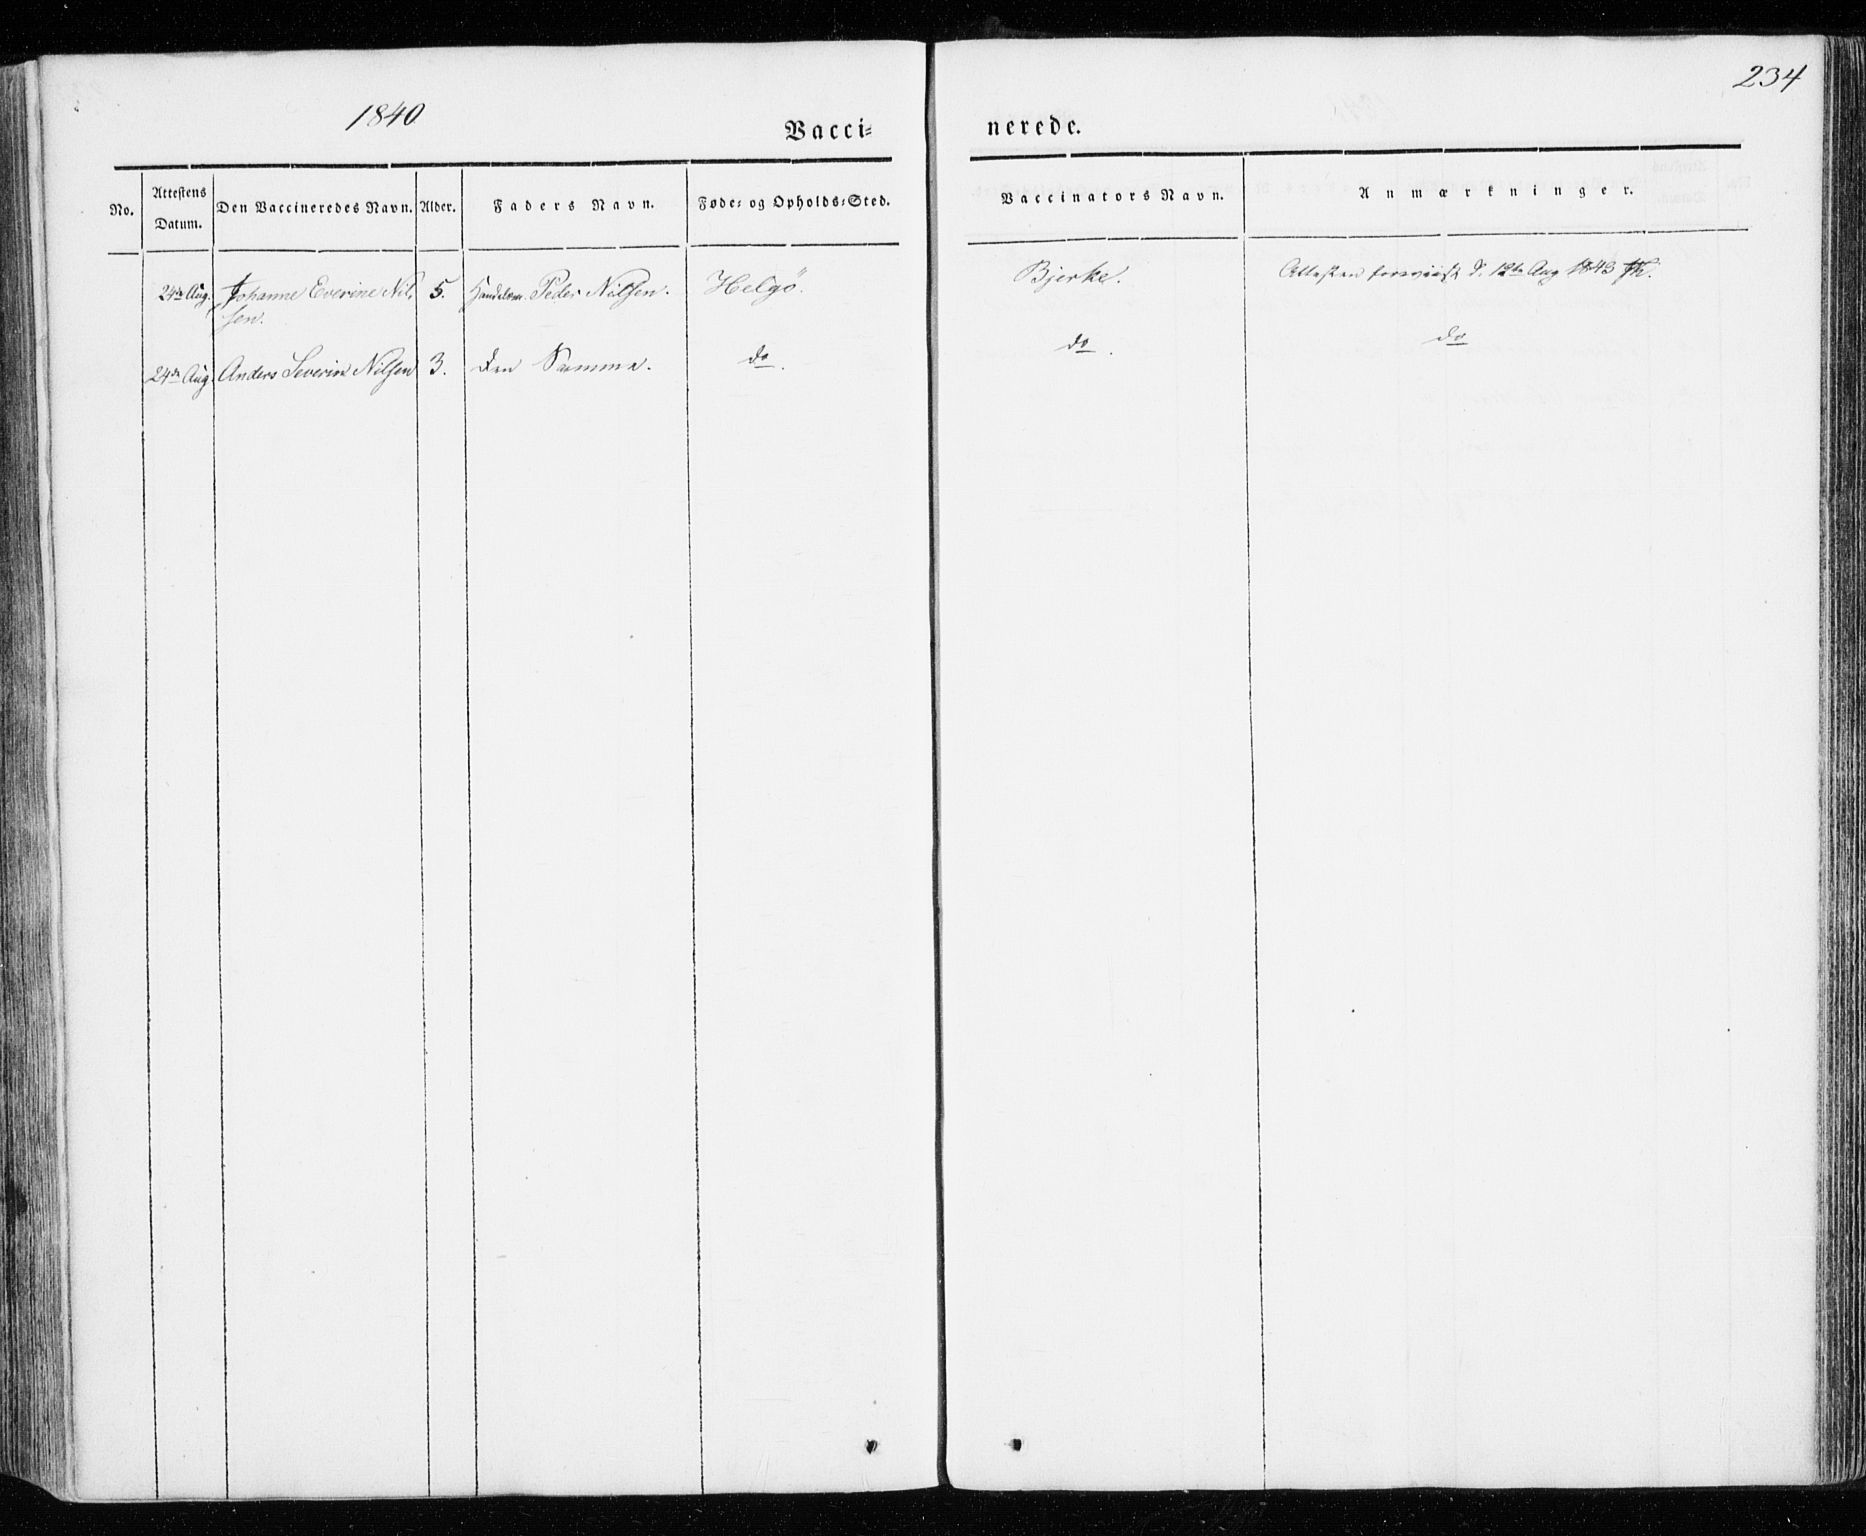 234
1840
Vacci-
nerede.
No.
Attestens Datum.
Den Vaccineredes Navn.
Alder.
Faders Navn.
Føde- og Opholds-Sted.
Vaccinators Navn.
Anmærkninger.
24de Aug. Johanne Everine Nil- 5. Handelsm. Peder Nilsen. Helgö. Bjerke. Attesten foreviist d. 12te Aug 1843
sen.
24de Aug. Anders Severin Nilsen 3. den Samme. do. do. do